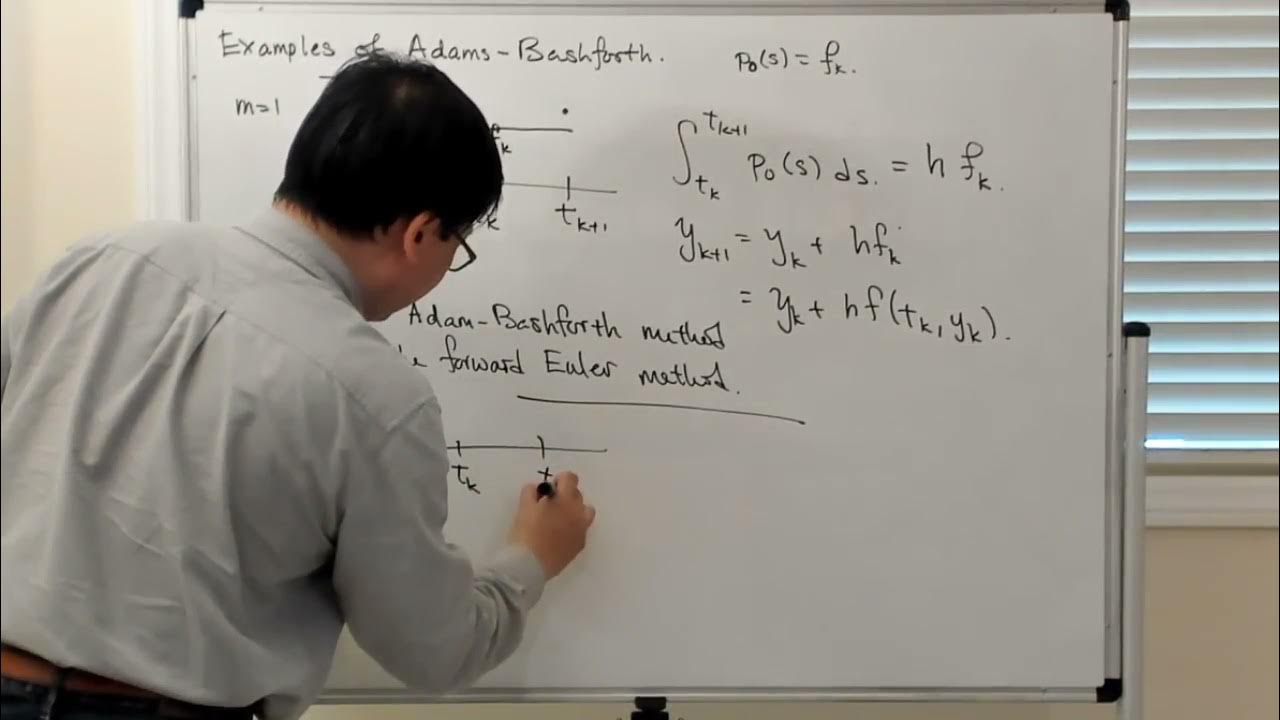 Examples of Adams-Bashforth.
p₀(s) = fₖ.
m=1
k
k tₖ₊₁
∫_{tₖ}^{tₖ₊₁} p₀(s) ds. = h fₖ.
yₖ₊₁ = yₖ + hfₖ
= yₖ + hf(tₖ, yₖ).
Adam-Bashforth method
forward Euler method.
tₖ t